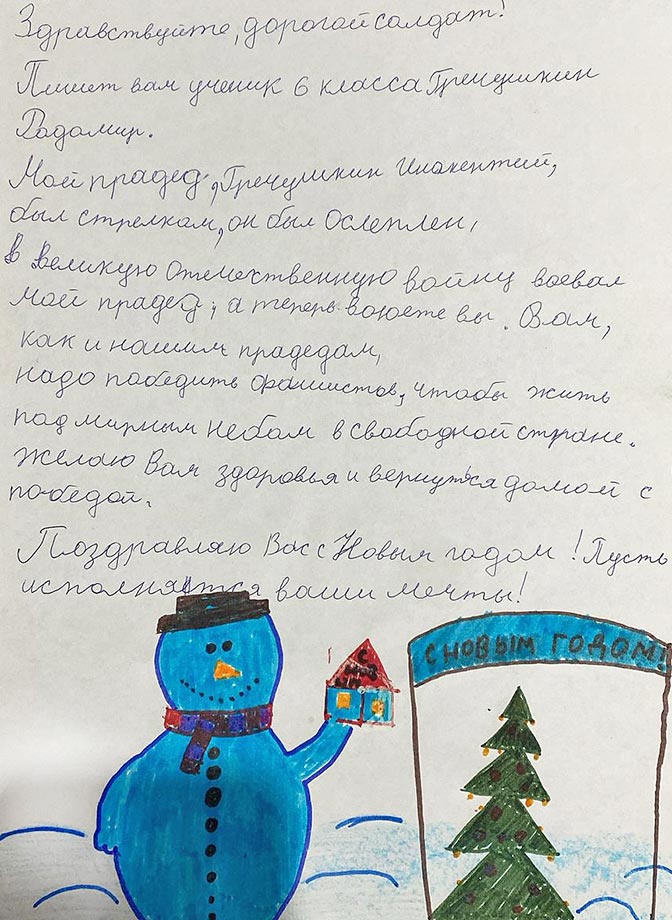 Здравствуйте, дорогой солдат!
Пишет вам ученик 6 класса Гречушкин
Радомир.
Мой прадед, Гречушкин Инокентий,
был стрелком, он был ослеплен,
в великую отечественную войну воевал
мой прадед, а теперь воюете вы. Вам,
как и нашим прадедам,
надо победить фашистов, чтобы жить
под мирным небом в свободной стране.
Желаю Вам здоровья и вернуться домой с
победой.
Поздравляю Вас с Новым годом! Пусть
исполняются ваши мечты!
С НОВЫМ ГОДОМ!
С
НОВ
ЫМ